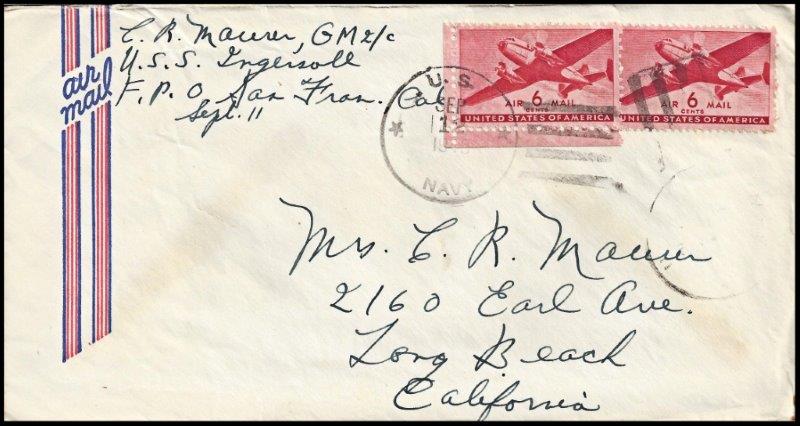 C. R. Maurer, GM2/c
U.S.S. Ingersoll
F.P.O. San Fran. Cal
Sept. 11
air
mail
U.S.
SEP
12
NAVY
AIR 6 MAIL
CENTS
UNITED STATES OF AMERICA
AIR 6 MAIL
CENTS
UNITED STATES OF AMERICA
Mrs. C. R. Maurer
2160 Earl Ave.
Long Beach
California